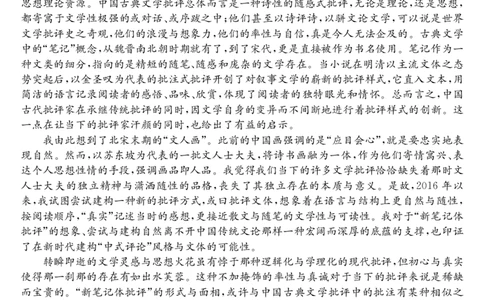 思想理论资源。中国古典文学批评总体而言是一种诗性的随感式批评,无论是理论,还是思想,
都寄寓于文学性极强的或对话、或序跋之中,他们甚至以诗评诗,以骈文论文学,可以说是世界
文学批评史之奇观,他们的浪漫与想象力,他们的率性与自信,真是令人无法企及的。古典文学
中的“笔记”概念,从魏晋南北朝时期就有了,到了宋代,更是直接被作为书名使用。笔记作为一
种文类的细分,指向的是精短的随笔、随感和庞杂的文学存在。当小说在明清以主流文体之态
势突起后,以金圣叹为代表的批注式批评开创了对叙事文学的崭新的批评样式,它直入文本,用
简洁的语言记录阅读者的感悟、品味、欣赏,体现了阅读者的独特眼光和情怀。总而言之,中国
古代批评家在承继传统批评的同时,因文学自身的变异而不间断地进行着批评样式的创新。这
一点在让当下的批评家汗颜的同时,也给出了有益的启示。
我由此想到了北宋末期的“文人画”。此前的中国画强调的是“应目会心”,就是要忠实地表
现自然。然而,以苏东坡为代表的一批文人士大夫,将诗书画融为一体,作为他们寄情寓兴、表
达个人思想性情的手段,强调画品即人品。我觉得我们当下的许多文学批评恰恰缺失着那时文
人士大夫的独立精神与潇洒随性的品格,丧失了其独立存在的本质与意义。是故,2016 年以
来,我试图尝试建构一种新的批评方式,或曰批评文体,想象着在语言与结构上更自然与随性,
按阅读顺序,“真实”记述当时的感想,更接近散文与随笔的文学性与可读性。我对于“新笔记体
批评”的想象、尝试与建构自然离不开中国传统文论那样一种宏阔而深厚的底蕴的支撑,也印证
了在新时代建构“中式评论”风格与文体的可能性。
转瞬即逝的文学灵感与思想火花虽有悖于那种逻辑化与学理化的现代批评,但初心与真实
使得那一刹那的存在有如出水芙蓉。这种不加掩饰的率性与真诚对于当下的批评来说是稀缺
而宝贵的。“新笔记体批评”的形式与面相,或许与中国古典文学批评中的批注有某种相似之